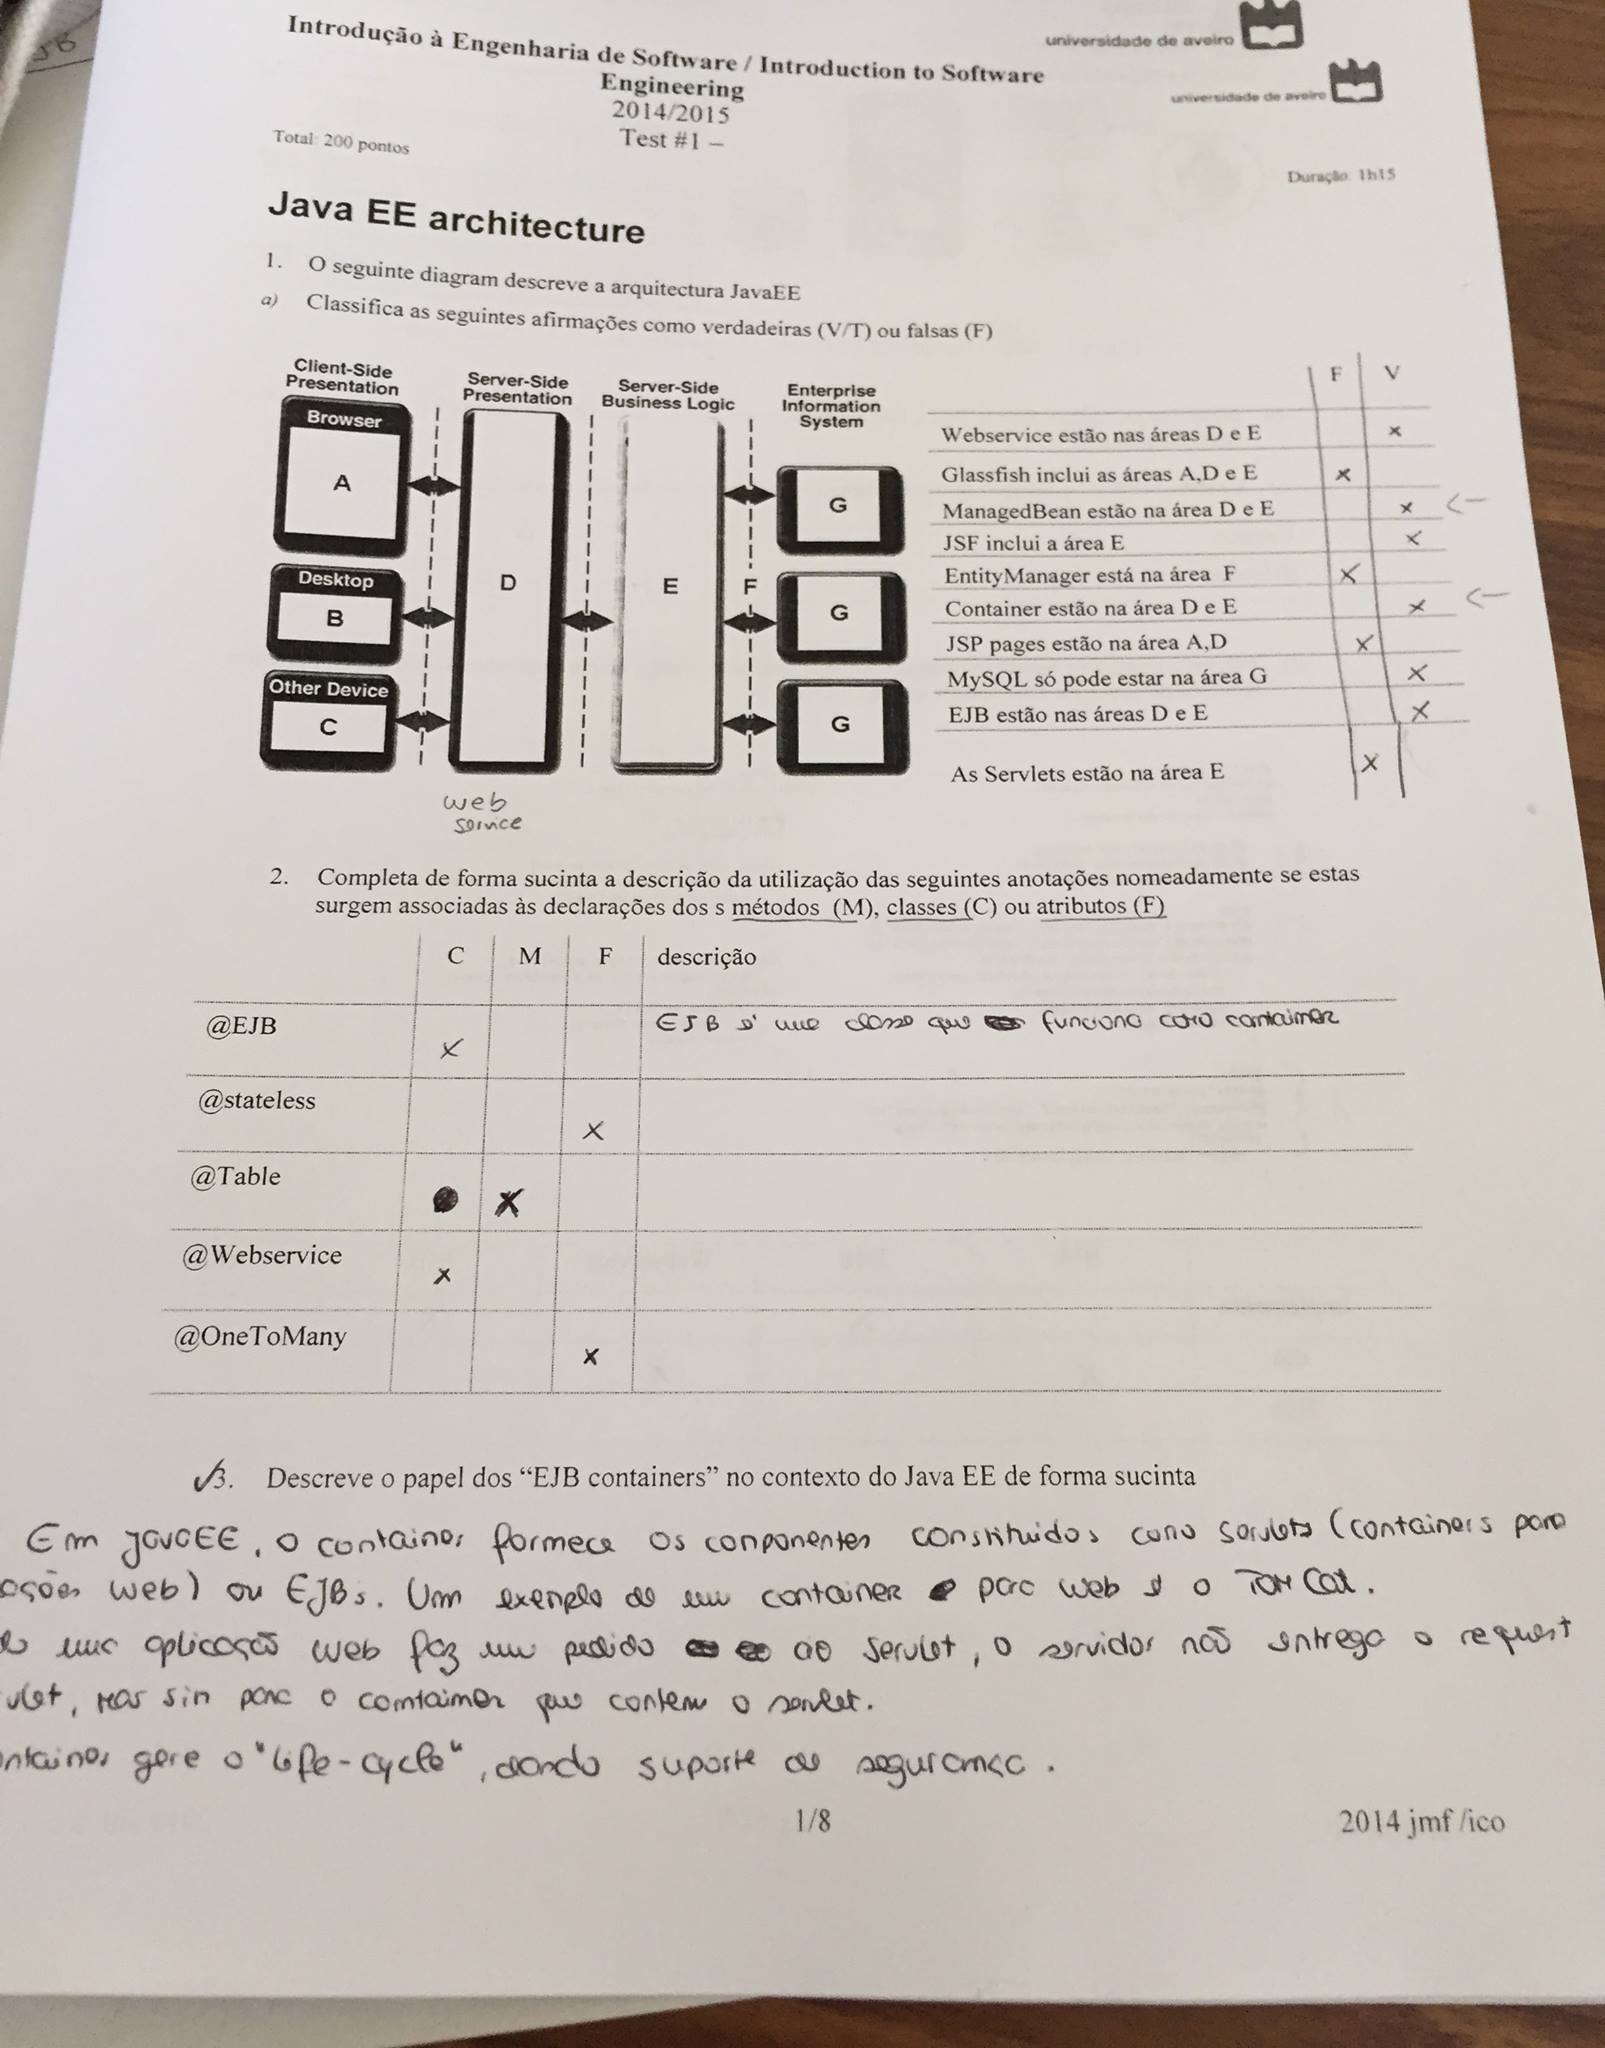 JB
Introdução à Engenharia de Software / Introduction to Software
Engineering
2014/2015
Test #1 –
universidade de aveiro
universidade de aveiro
Total: 200 pontos
Duração: 1h15
Java EE architecture
1. O seguinte diagram descreve a arquitectura JavaEE
a) Classifica as seguintes afirmações como verdadeiras (V/T) ou falsas (F)
Client-Side
Presentation
Server-Side
Presentation
Server-Side
Business Logic
Enterprise
Information
System
Browser
A
Desktop
B
Other Device
C
D
E
F
G
G
G
web
service
F V
Webservice estão nas áreas D e E x
Glassfish inclui as áreas A,D e E x
ManagedBean estão na área D e E x <-
JSF inclui a área E x
EntityManager está na área F x
Container estão na área D e E x <-
JSP pages estão na área A,D x
MySQL só pode estar na área G x
EJB estão nas áreas D e E x
As Servlets estão na área E x
2. Completa de forma sucinta a descrição da utilização das seguintes anotações nomeadamente se estas
surgem associadas às declarações dos s métodos (M), classes (C) ou atributos (F)
C M F descrição
@EJB x EJB é uma classe que funciona como container
@stateless x
@Table x
@Webservice x
@OneToMany x
3. Descreve o papel dos “EJB containers” no contexto do Java EE de forma sucinta
Em javaEE, o container fornece os componentes constituidos como servlets (containers para
ações web) ou EJBs. Um exemplo de um container para web é o TomCat.
uma aplicação web faz um pedido ao servlet, o servidor não entrega o request
vlet, mas sim para o container que contem o servlet.
ntainer gere o "life-cycle", dando suporte de segurança.
1/8
2014 jmf /ico